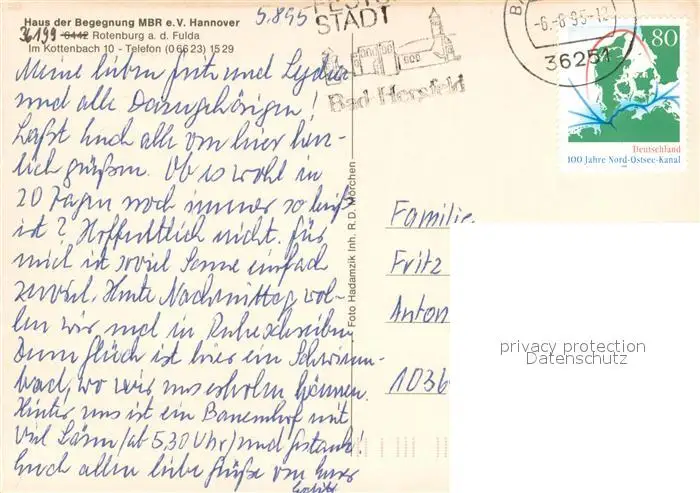 Haus der Begegnung MBR e.V. Hannover
36199 6442 Rotenburg a. d. Fulda
Im Kottenbach 10 - Telefon (0 66 23) 15 29
5.8.95
Meine lieben Fritz und
und alle Dazugehörigen!
Laßt Euch alle von hier herz-
lich grüßen. Ob es wohl in
20 Tagen noch immer so heiß
ist? Hoffentlich nicht. Für
mich ist soviel Sonne einfach
zuviel. Heute Nachmittag wol-
len wir mal in Ruhe schreiben
Zum Glück ist hier ein Schwimm-
bad, wo wir uns erholen können.
Hinter uns ist ein Bauernhof mit
viel Lärm (ab 5,30 Uhr) und Gestank!
Euch allen liebe Grüße von Eurer
Foto Hadamzik Inh. R.D. Mörchen
STADT
Bad Hersfeld
-6.-8.95-
36251
80
Deutschland
100 Jahre Nord-Ostsee-Kanal
Familie
Fritz
Anton
1036
privacy protection
Datenschutz